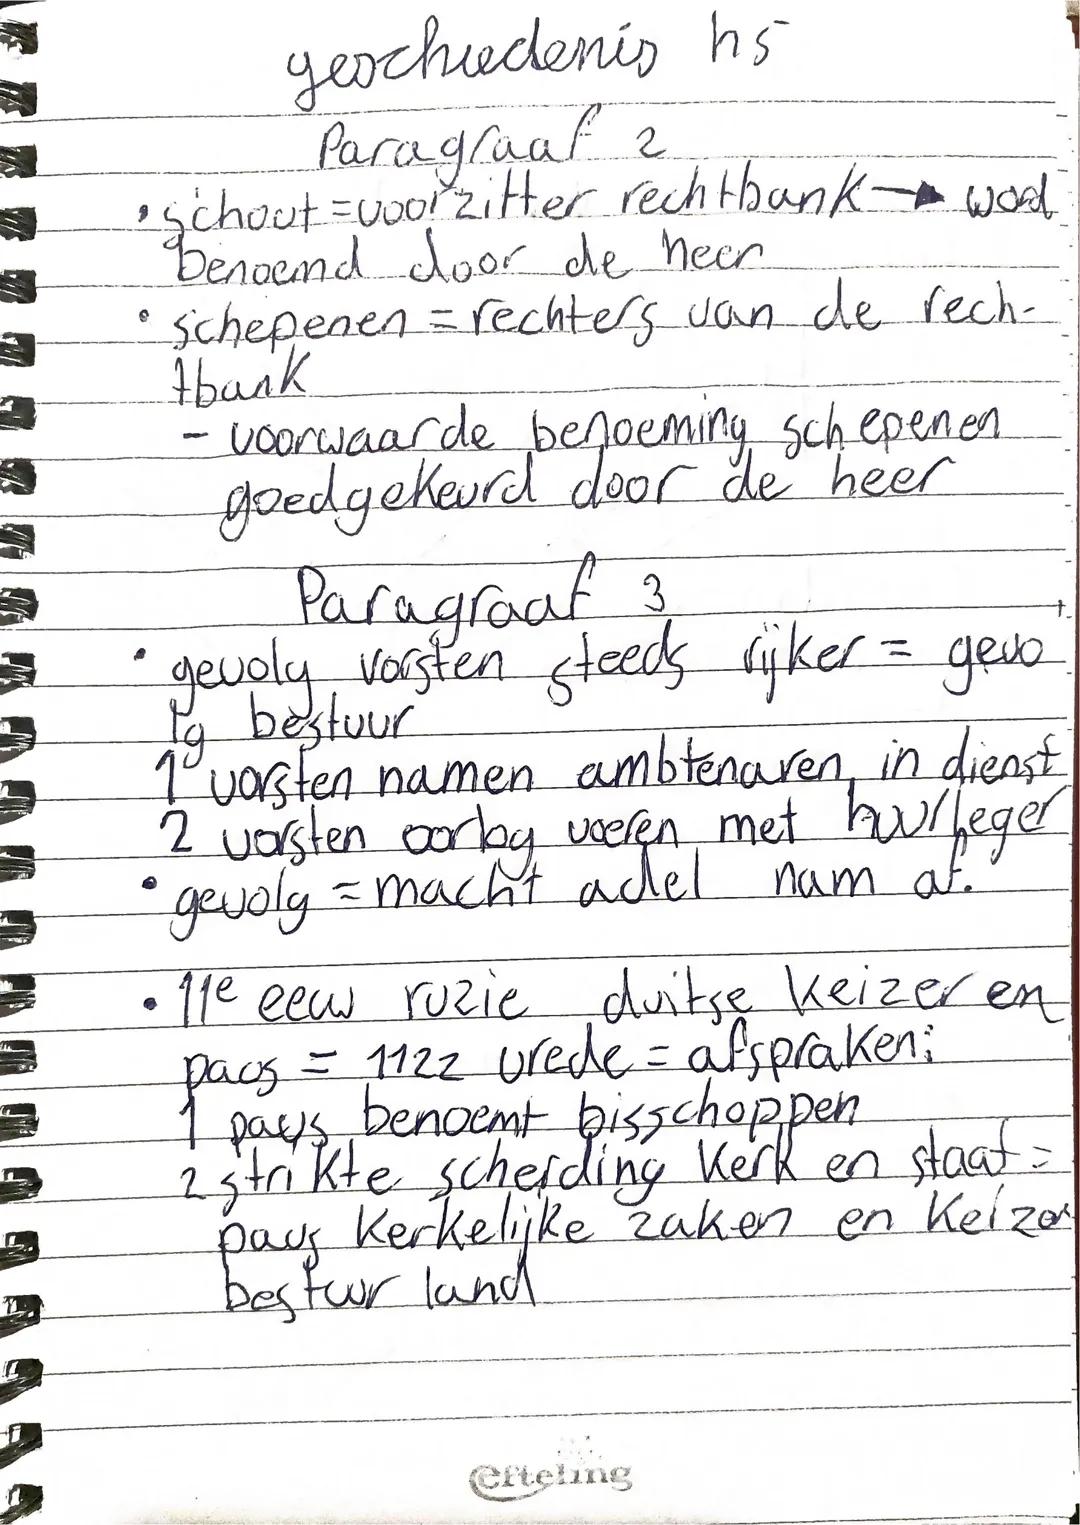 geschiedenis hs
Paragraaf 2
• schout = voorzitter rechtbank → word
benoemd door de heer
• schepenen = rechters van de rech-
tbank
- voorwaarde benoeming schepenen
goedgekeurd door de heer
Paragraaf 3
• gevolg vorsten steeds rijker = gevo
lg bestuur
1 vorsten namen ambtenaren in dienst
2 vorsten oorlog voeren met huurleger
• gevolg = macht adel nam af.
• 11e eeuw ruzie duitse keizer en
paus = 1122 vrede = afspraken:
1 paus benoemt bisschoppen
2 strikte scheiding kerk en staat =
paus kerkelijke zaken en keizer
bestuur land
efteling